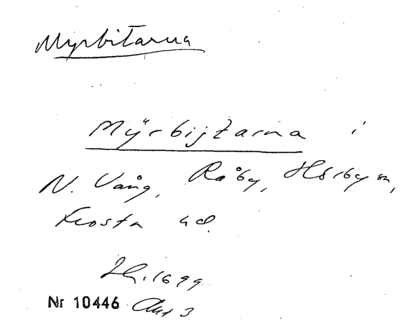 Myrbitarna
Mÿrbijtarna i
N. Vång, Råby, Hörby sn,
Frosta hd.
Jb. 1699
Nr 10446 Avs 3